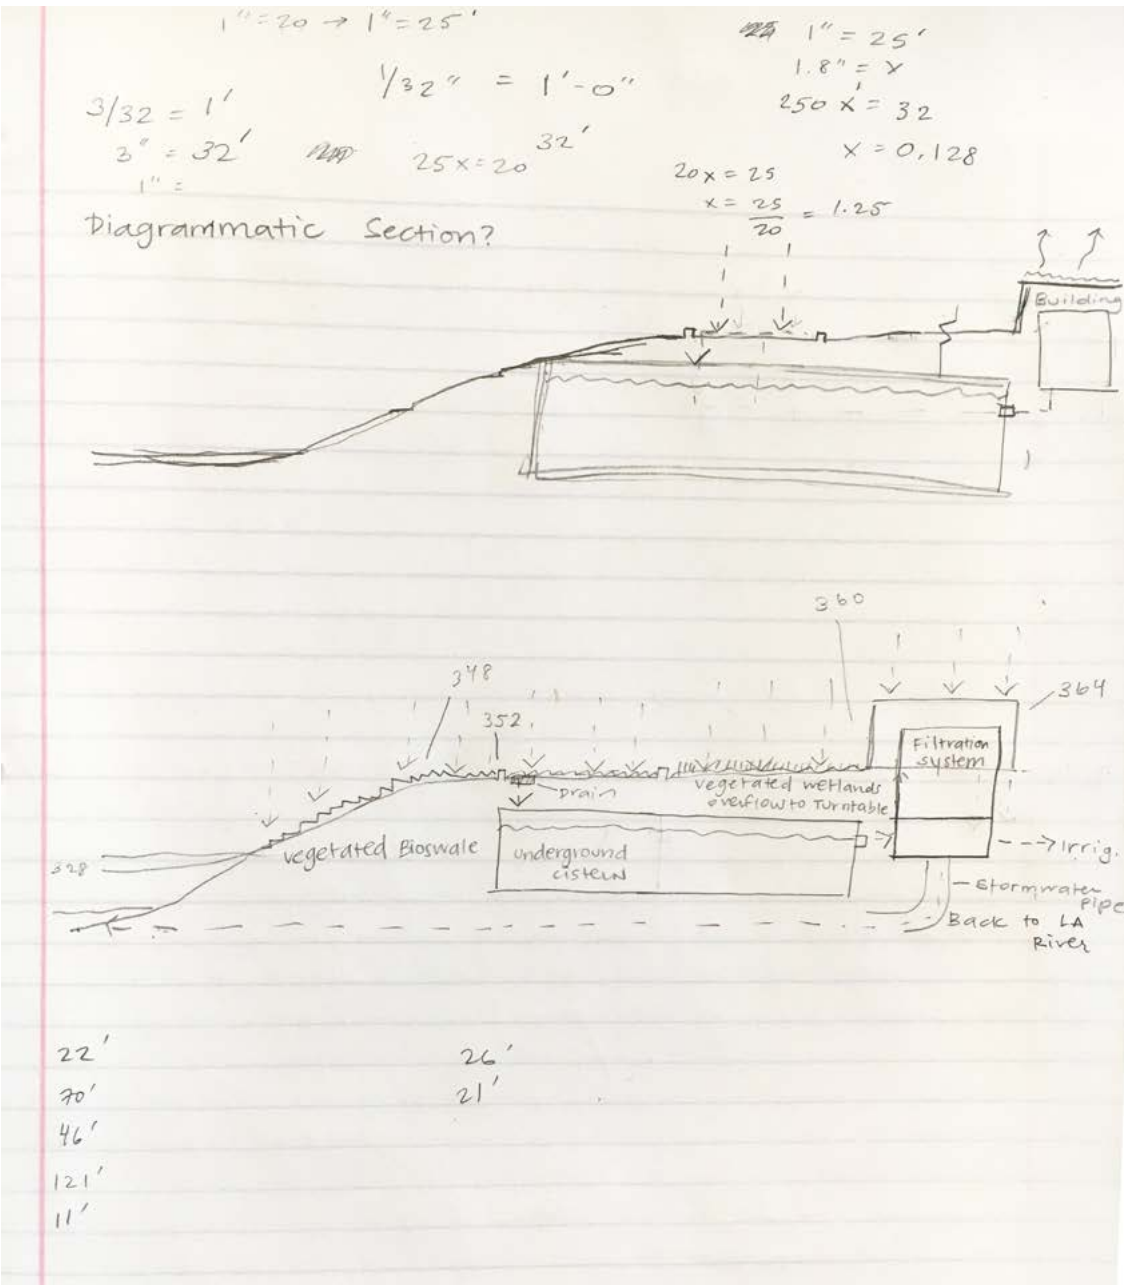 1"=20 → 1"=25'
1" = 25'
1.8" = x
250 x' = 32
x = 0.128
1/32" = 1'-0"
32'
3/32 = 1'
3" = 32'
1" =
25x=20
20x = 25
x = 25/20 = 1.25
Diagrammatic Section?
Building
360
348
364
352
Filtration
system
Drain
vegetated wetlands
overflow to Turntable
328
vegetated Bioswale
underground
cistern
Irrig.
Stormwater
Pipe
Back to LA
River
22'
26'
70'
21'
46'
121'
11'